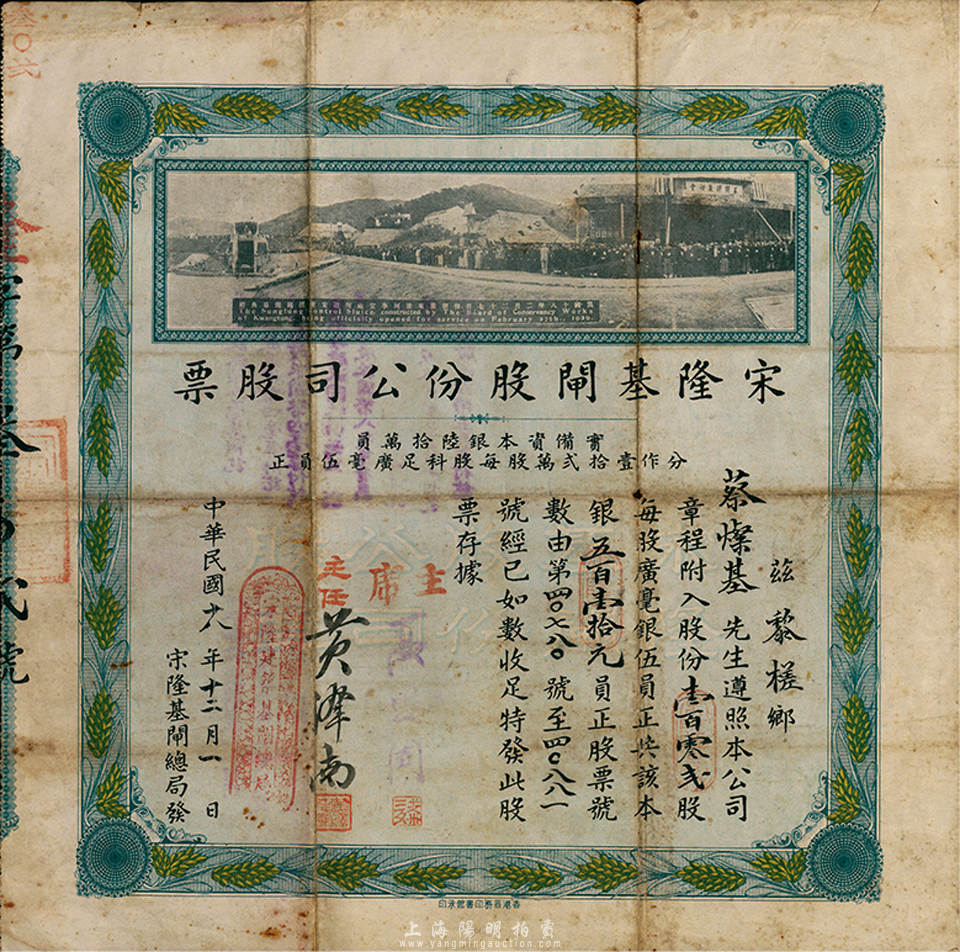 叁〇六
民國十八年二月二十七日
The Sunglung Control Sluice, constructed by The Board of Conservancy Works
of Kwangtung, being officially opened for service on February 27th., 1929.
宋隆基閘股份公司股票
實備資本銀陸拾萬員
分作壹拾弍萬股每股科足廣毫伍員正
茲黎槎鄉
蔡燦基先生遵照本公司
章程附入股份壹百零弍股
每股廣毫銀伍員正共該本
銀五百壹拾元員正股票號
數由第四〇七八〇號至四〇八八一
號經已如數收足特發此股
票存據
主席
主任
黃澤南
中華民國十八年十二月一日
宋隆基閘總局發
香港商務印書館承印
上海陽明拍賣
www.yangmingauction.com